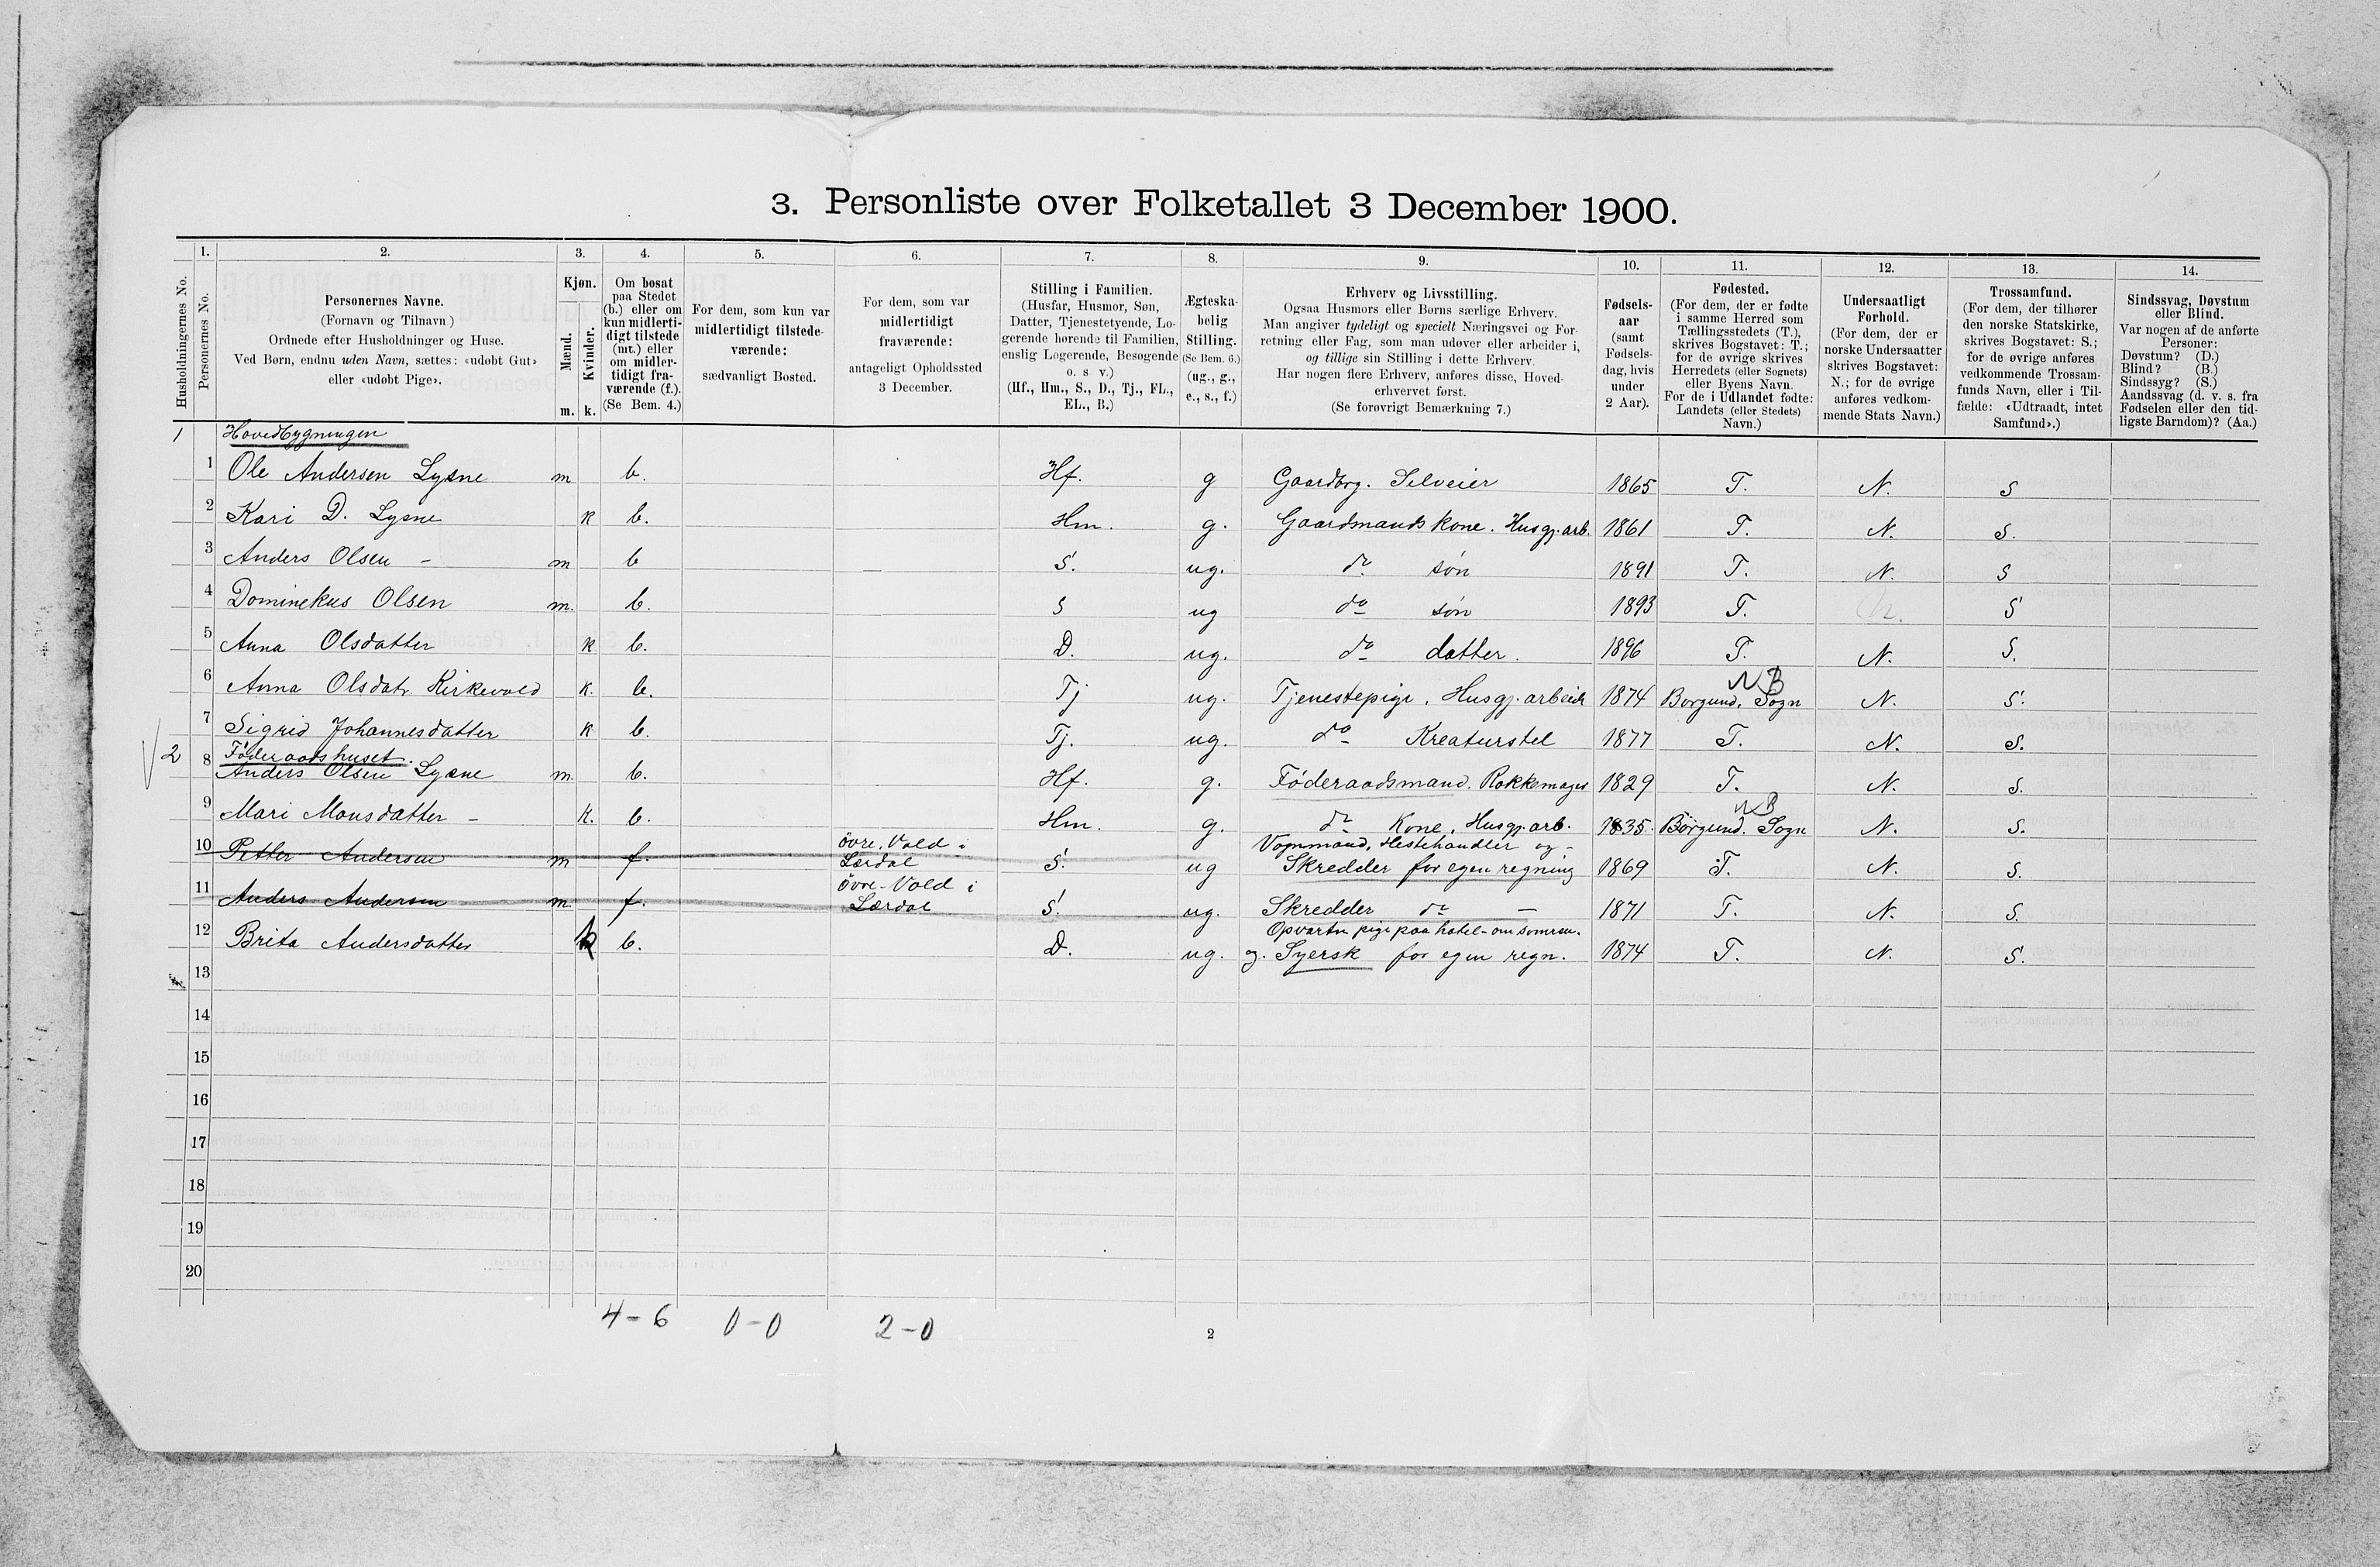 3. Personliste over Folketallet 3 December 1900.
Husholdningernes No.
1.
Personernes No.
2.
Personernes Navne.
(Fornavn og Tilnavn)
Ordnede efter Husholdninger og Huse.
Ved Børn, endnu uden Navn, sættes: «udøbt Gut»
eller «udøbt Pige».
3.
Kjøn.
Mænd.
Kvinder.
m. k.
4.
Om bosat
paa Stedet
(b.) eller om
kun midlerti-
digt tilstede
(mt.) eller
om midler-
tidigt fra-
værende (f.).
(Se Bem. 4.)
5.
For dem, som kun var
midlertidigt tilstede-
værende:
sædvanligt Bosted.
6.
For dem, som var
midlertidigt
fraværende:
antageligt Opholdssted
3 December.
7.
Stilling i Familien.
(Husfar, Husmor, Søn,
Datter, Tjenestetyende, Lo-
gerende hørende til Familien,
enslig Logerende, Besøgende
o. s v.)
(Hf., Hm., S., D., Tj., FL.,
EL., B.)
8.
Ægteska-
belig
Stilling.
(Se Bem. 6.)
(ug., g.,
e., s., f.)
9.
Erhverv og Livsstilling.
Ogsaa Husmors eller Børns særlige Erhverv.
Man angiver tydeligt og specielt Næringsvei og For-
retning eller Fag, som man udøver eller arbeider i,
og tillige sin Stilling i dette Erhverv.
Har nogen flere Erhverv, anføres disse, Hoved-
erhvervet først.
(Se forøvrigt Bemærkning 7.)
10.
Fødsels-
aar
(samt
Fødsels-
dag, hvis
under
2 Aar).
11.
Fødested.
(For dem, der er fødte
i samme Herred som
Tællingsstedets (T.),
skrives Bogstavet: T.;
for de øvrige skrives
Herredets (eller Sognets)
eller Byens Navn.
For de i Udlandet fødte:
Landets (eller Stedets)
Navn.)
12.
Undersaatligt
Forhold.
(For dem, der er
norske Undersaatter
skrives Bogstavet:
N.; for de øvrige
anføres vedkom-
mende Stats Navn.)
13.
Trossamfund.
(For dem, der tilhører
den norske Statskirke,
skrives Bogstavet: S.;
for de øvrige anføres
vedkommende Trossam-
funds Navn, eller i Til-
fælde: «Udtraadt, intet
Samfund».)
14.
Sindssvag, Døvstum
eller Blind.
Var nogen af de anførte
Personer:
Døvstum? (D.)
Blind? (B.)
Sindssyg? (S.)
Aandssvag (d. v. s. fra
Fødselen eller den tid-
ligste Barndom)? (Aa.)
1 Hovedbygningen
1 Ole Andersen Lysne m b. Hf. g Gaardbrg. Selveier 1865 T. N. S
2 Kari D. Lysne k b. Hm. g. Gaardmands kone. Husgj. arb. 1861 T. N. S.
3 Anders Olsen - m b — S. ug. do søn 1891 T. N. S
4 Dominekus Olsen m. b. S ug do søn 1893 T. N. S
5 Anna Olsdatter k b. D. ug. do datter. 1896 T. N. S.
6 Anna Olsdatr Kirkevold k. b. Tj ug. Tjenestepige, Husgj. arbeide 1874 Borgund, Sogn NB N. S.
7 Sigrid Johannesdatter k b. Tj. ug. do Kreaturstel 1877 T. N. S.
2 Føderaadshuset.
8 Anders Olsen Lysne m. b. Hf. g. Føderaadsmand. Rokkemager 1829 T. N. S.
9 Mari Monsdatter - k. b. Hm. g. do Kone, Husgj. arb. 1835 Borgund. Sogn NB N. S.
10 Petter Andersen m f. øvre, Vold i
Lærdal S. ug Skredder for egen regning 1869 T. N. S.
11 Anders Andersen m. f. Øvre-Vold i
Lærdal S. ug. Skredder do — 1871 T. N. S.
12 Brita Andersdatter k b. D. ug. Opvartn. pige paa hotel om somren.
og. Syersk for egen regn. 1874 T. N. S.
13
14
15
16
17
18
19
20
4-6 0-0 2-0
2